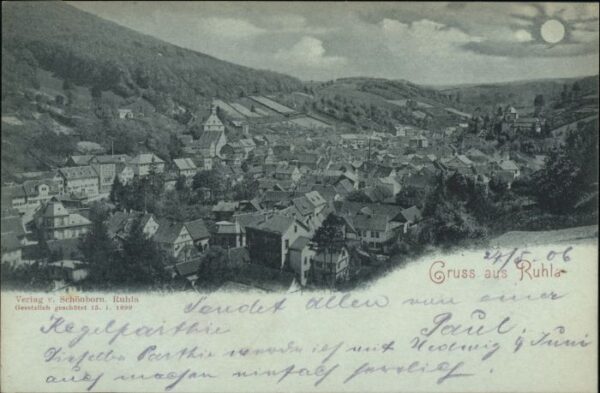 24/5. 06
Gruss aus Ruhla
Verlag v. Schönborn, Ruhla
Gesetzlich geschützt 15. 1. 1899
Sendet allen von einer
Kegelparthie Paul.
Dieselbe Parthie werde ich mit Hedwig 4 Juni
auch machen einfach herrlich.